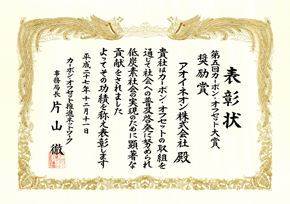 表彰状
第五回カーボン・オフセット大賞
奨励賞
アオイネオン株式会社 殿
貴社はカーボン・オフセットの取組を
通じて社会への普及啓発に努められ
低炭素社会の実現のために顕著な
貢献をされました
よってその功績を称え表彰します
平成二十七年十二月十一日
カーボン・オフセット推進ネットワーク
事務局長 片山 徹